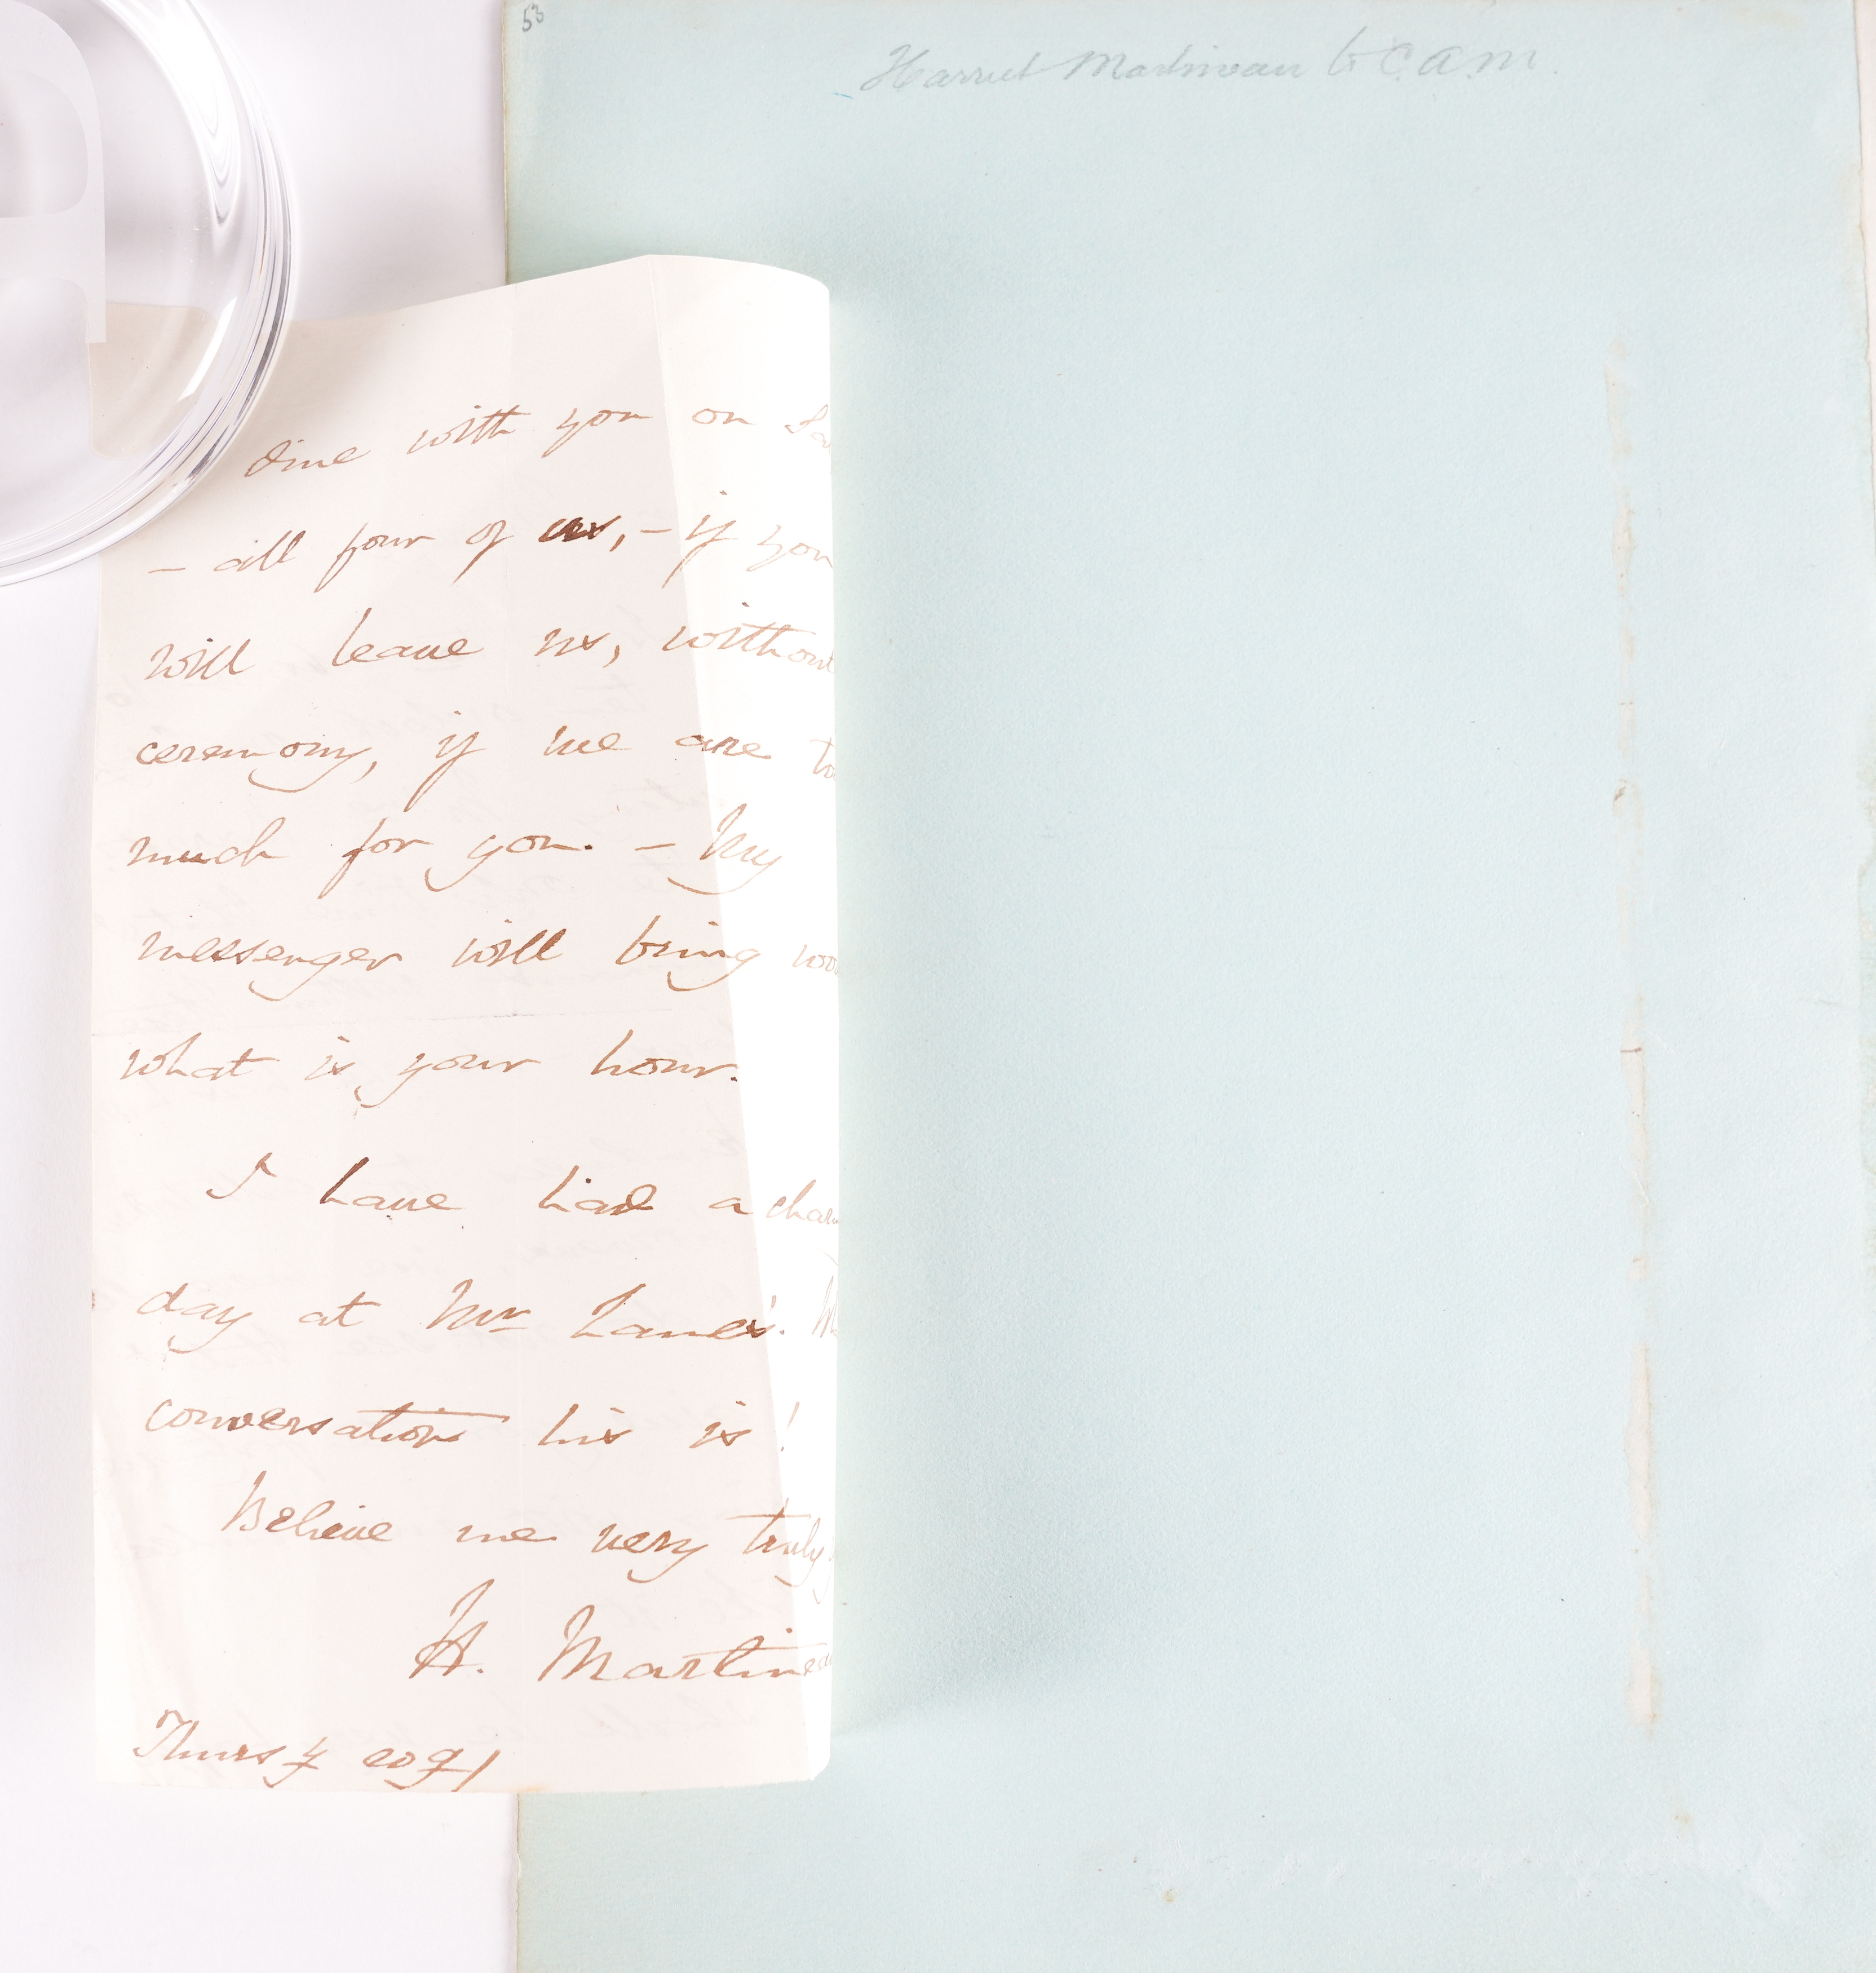 53
Harriet Martineau to C.A.M.
dine with you on
– all four of us, – if you
will leave us, without
ceremony, if we are
much for you. – My
messenger will bring
what is your hour.
I have had a
day at Mr Lane's.
conversation his is!
Believe me very truly
H. Martineau
Thursy evg/